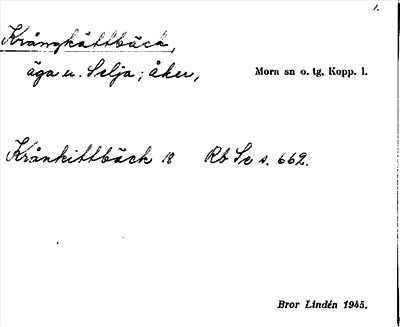 1.
Krångkättbäck,
äga u. Selja; åker,
Mora sn o. tg, Kopp. l.
Krånkittbäck 18 Rb Se s. 662.
Bror Lindén 1945.